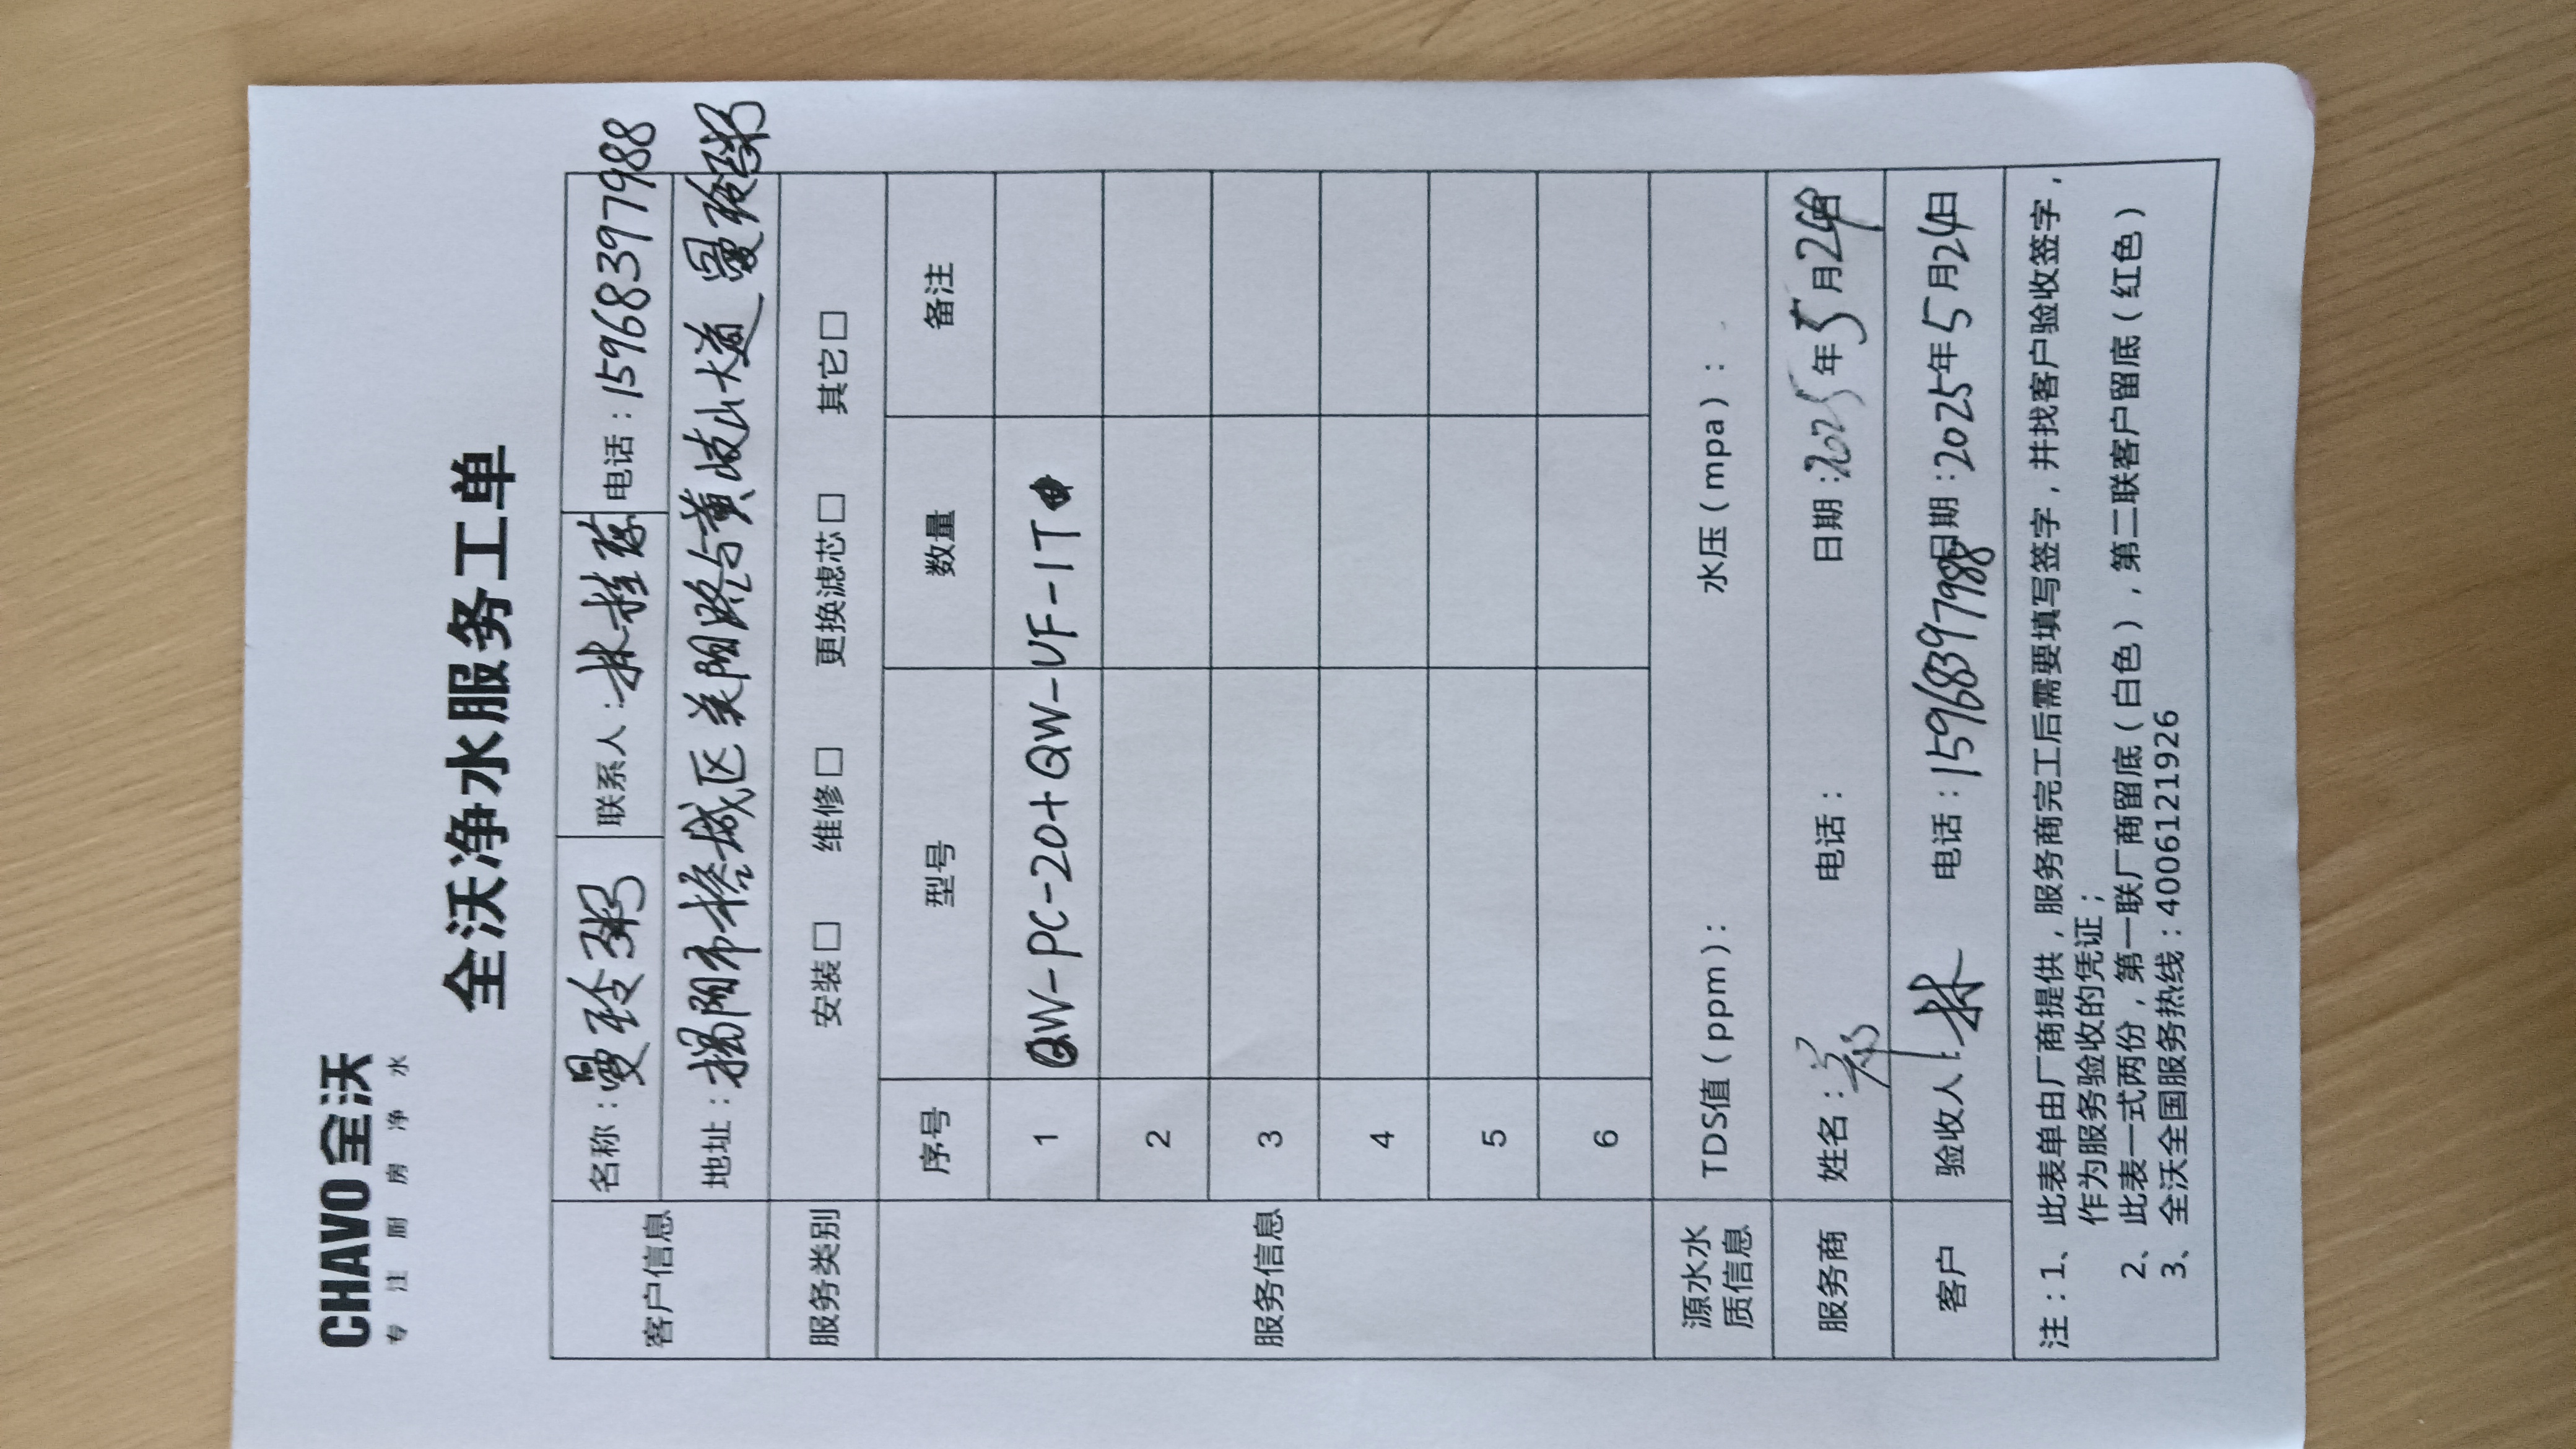 CHAVO 全沃
专注厨房净水
全沃净水服务工单
客户信息 名称：曼玲粥 联系人：林桂 电话：15968397988
地址：揭阳市榕城区美阳路与黄岐山大道曼玲粥
服务类别 安装□ 维修□ 更换滤芯□ 其它□
服务信息 序号 型号 数量 备注
1 QW-PC-20+QW-UF-1T
2
3
4
5
6
源水水质信息 TDS值（ppm）： 水压（mpa）：
服务商 姓名： 电话： 日期：2025年5月24日
客户 验收人：林 电话：15968397988 日期：2025年5月24日
注：1、此表单由厂商提供，服务商完工后需要填写签字，并找客户验收签字，
作为服务验收的凭证；
2、此表一式两份，第一联厂商留底（白色），第二联客户留底（红色）
3、全沃全国服务热线：4006121926